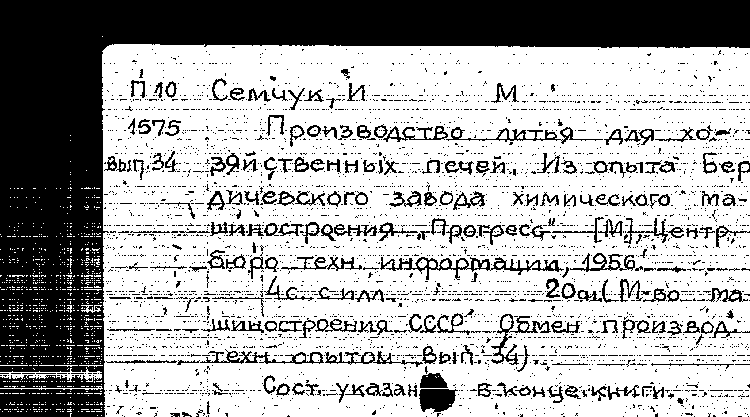 П 10 Семчук, И М
1575 Производство литья для хо-
вып. 34 зяйственных печей. Из опыта Бер
дичевского завода химического ма-
шиностроения „Прогресс". [М], Центр.
бюро техн. информации, 1956.
4с. с илл. 20см (М-во ма
шиностроения СССР. Обмен производ.
техн. опытом. Вып. 34).
Сост. указан в конце книги.